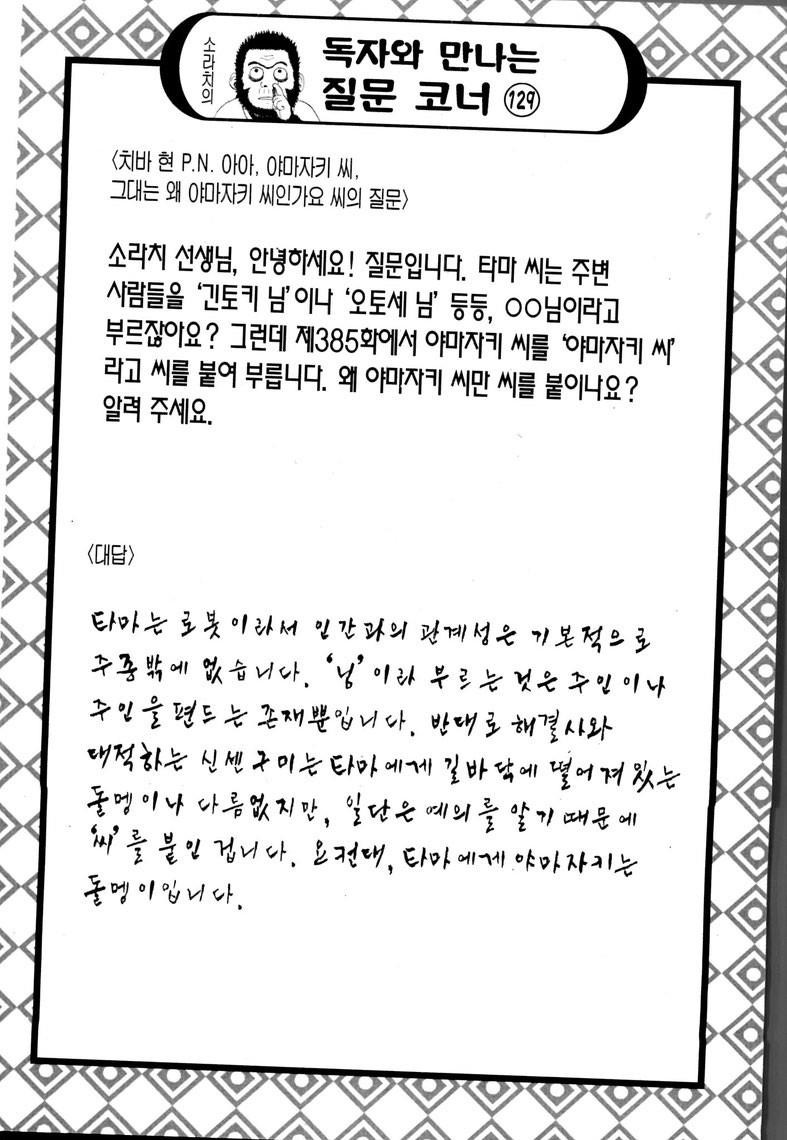 소라치의
독자와 만나는
질문 코너 129
〈치바 현 P.N. 아아, 야마자키 씨,
그대는 왜 야마자키 씨인가요 씨의 질문〉
소라치 선생님, 안녕하세요! 질문입니다. 타마 씨는 주변
사람들을 '긴토키 님'이나 '오토세 님' 등등, ○○님이라고
부르잖아요? 그런데 제385화에서 야마자키 씨를 '야마자키 씨'
라고 씨를 붙여 부릅니다. 왜 야마자키 씨만 씨를 붙이나요?
알려 주세요.
〈대답〉
타마는 로봇이라서 인간과의 관계성은 기본적으로
주종밖에 없습니다. '님'이라 부르는 것은 주인이나
주인을 편드는 존재뿐입니다. 반대로 해결사와
대적하는 신센구미는 타마에게 길바닥에 떨어져 있는
돌멩이나 다름없지만, 일단은 예의를 알기 때문에
'씨'를 붙인 겁니다. 요컨대, 타마에게 야마자키는
돌멩이입니다.